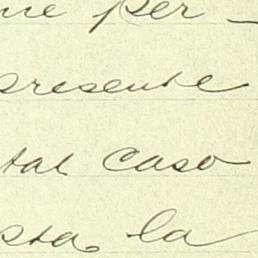 me per-
presente
tal caso
sta, la